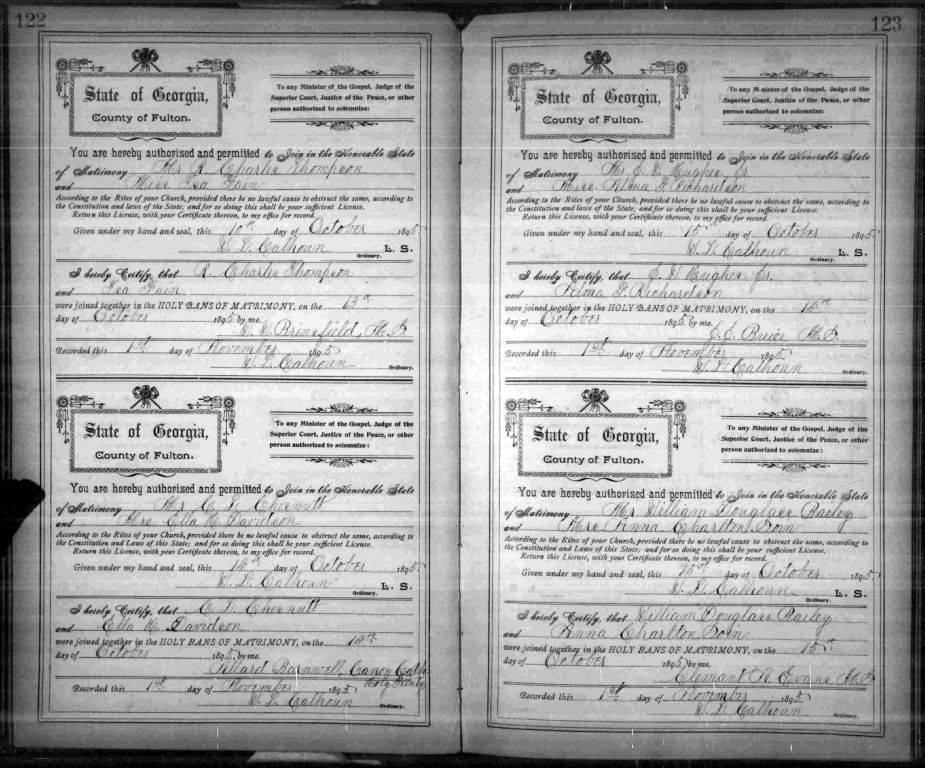 122
State of Georgia,
County of Fulton.
To any Minister of the Gospel, Judge of the
Superior Court, Justice of the Peace, or other
person authorized to solemnize:
You are hereby authorized and permitted to Join in the Honorable State
of Matrimony Mr R. Charlie Thompson
and Miss Fain
According to the Rites of your Church, provided there be no lawful cause to obstruct the same, according to
the Constitution and laws of the State; and for so doing this shall be your sufficient License.
Return this License, with your Certificate thereon, to my office for record.
Given under my hand and seal, this 10th day of October 1895
W. L. Calhoun L. S.
Ordinary.
I hereby Certify, that R. Charlie Thompson
and Fain
were joined together in the HOLY BANS OF MATRIMONY, on the 13th
day of October 1895 by me.
Brinsfield, M.G.
Recorded this 1st day of November 1895
W. L. Calhoun
Ordinary.
State of Georgia,
County of Fulton.
To any Minister of the Gospel, Judge of the
Superior Court, Justice of the Peace, or other
person authorized to solemnize:
You are hereby authorized and permitted to Join in the Honorable State
of Matrimony Mr C.
and Mrs. Ella H. Davidson
According to the Rites of your Church, provided there be no lawful cause to obstruct the same, according to
the Constitution and Laws of this State; and for so doing this shall be your sufficient License.
Return this License, with your Certificate thereon, to my office for record.
Given under my hand and seal, this 14th day of October 1895
W. L. Calhoun L. S.
Ordinary.
I hereby Certify, that C.
and Ella H. Davidson
were joined together in the HOLY BANS OF MATRIMONY, on the 14th
day of October 1895 by me.
Barnwell, Canon Cath
Holy Trinity
Recorded this 1st day of November 1895
W. L. Calhoun
Ordinary.
123
State of Georgia,
County of Fulton.
To any Minister of the Gospel, Judge of the
Superior Court, Justice of the Peace, or other
person authorized to solemnize:
You are hereby authorized and permitted to Join in the Honorable State
of Matrimony Mr Jr.
and Miss Richardson
According to the Rites of your Church, provided there be no lawful cause to obstruct the same, according to
the Constitution and laws of the State; and for so doing this shall be your sufficient License.
Return this License, with your Certificate thereon, to my office for record.
Given under my hand and seal, this 15th day of October 1895
W. L. Calhoun L. S.
Ordinary.
I hereby Certify, that Jr.
and Richardson
were joined together in the HOLY BANS OF MATRIMONY, on the
day of October 1895 by me.
M.G.
Recorded this 1st day of November 1895
W. L. Calhoun
Ordinary.
State of Georgia,
County of Fulton.
To any Minister of the Gospel, Judge of the
Superior Court, Justice of the Peace, or other
person authorized to solemnize:
You are hereby authorized and permitted to Join in the Honorable State
of Matrimony Mr William Douglass Bailey
and Miss Anna Charlton
According to the Rites of your Church, provided there be no lawful cause to obstruct the same, according to
the Constitution and Laws of this State; and for so doing this shall be your sufficient License.
Return this License, with your Certificate thereon, to my office for record.
Given under my hand and seal, this 15th day of October 1895
W. L. Calhoun L. S.
Ordinary.
I hereby Certify, that William Douglass Bailey
and Anna Charlton
were joined together in the HOLY BANS OF MATRIMONY, on the 15th
day of October 1895 by me.
Clement A. Evans M.G.
Recorded this 1st day of November 1895
W. L. Calhoun
Ordinary.